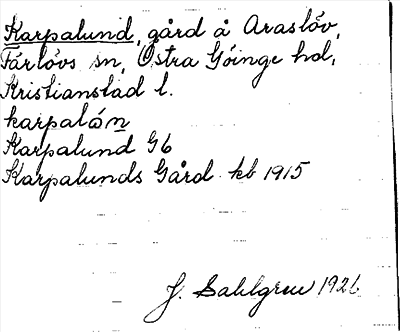 Karpalund, gård å Araslöv,
Färlövs sn, Östra Göinge hd,
Kristianstad l.
karpalön
Karpalund Gb
Karpalunds Gård kb 1915
J. Sahlgren 1926